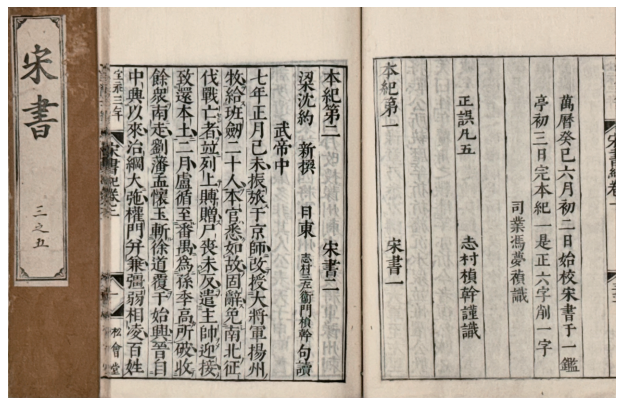 宋書
三之五
宋書紀卷一
萬曆癸巳六月初二日始校宋書于一鑑
亭初三日完本紀一是正六字削一字
司業馮夢禎識
正誤凡五 志村楨幹謹識
本紀第一 宋書一
本紀第二 宋書二
梁沈約 新撰 日東 志村三左衞門楨幹 句讀
武帝中
七年正月己未振旅于京師改授大將軍揚州
牧給班劒二十人本官悉如故固辭免南北征
伐戰亡者竝列上賻贈尸喪未反遣主帥迎接
致還本土二月盧循至番禺為孫季高所破收
餘衆南走劉藩孟懷玉斬徐道覆于始興晉自
中興以來治綱大弛權門并兼彊弱相凌百姓
三年 宋書紀卷二 一 松會堂